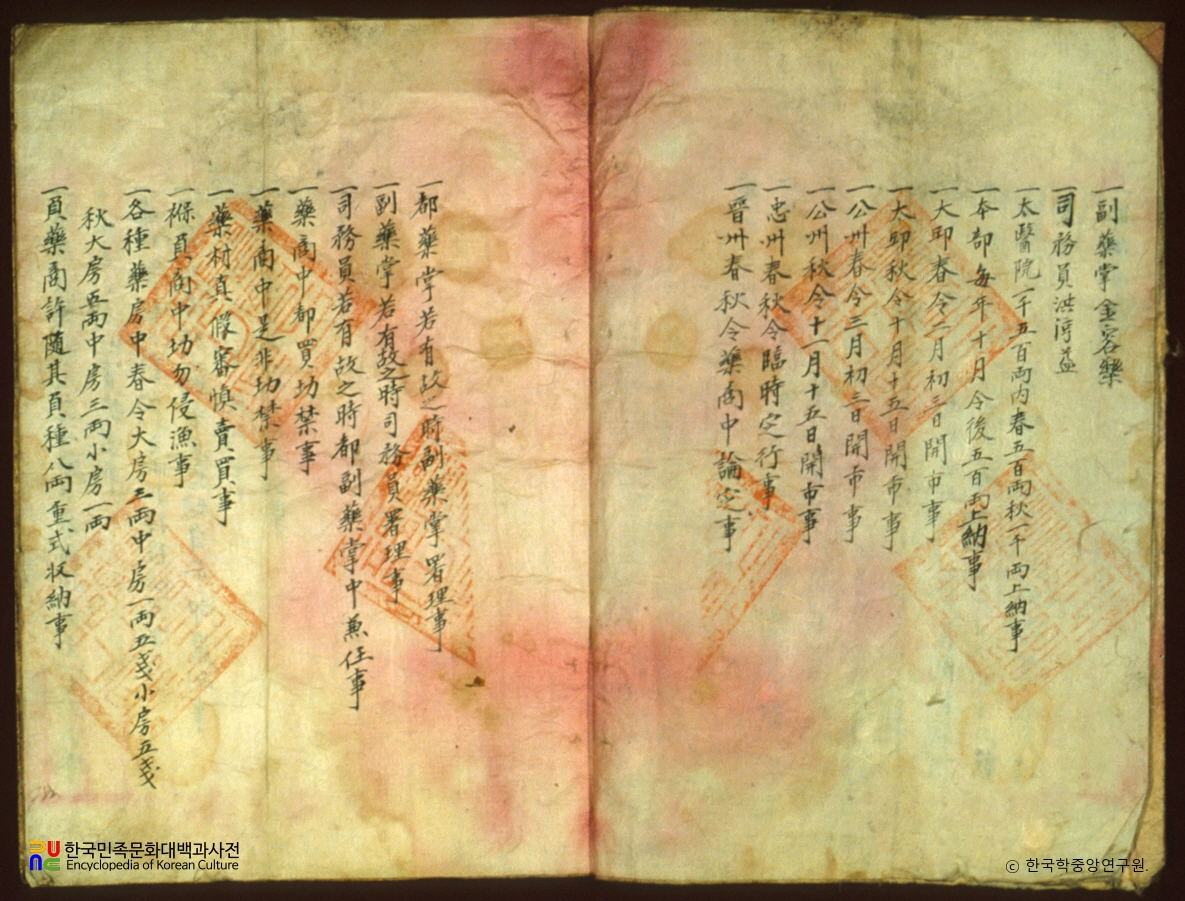 一副藥掌金容樂
司務員洪淳益
一太醫院一千五百両內春五百両秋一千両上納事
一本部每年十月令後五百両上納事
一大邱春令二月初三日開市事
一大邱秋令十月十五日開市事
一公州春令三月初三日開市事
一公州秋令十一月十五日開市事
一忠州春秋令臨時定行事
一晋州春秋令藥商中論定事
一都藥掌若有故之時副藥掌署理事
一副藥掌若有故之時司務員署理事
一司務員若有故之時都副藥掌中兼任事
一藥商中都買切禁事
一藥商中是非切禁事
一藥材真假審愼賣買事
一褓負商中切勿侵漁事
一各種藥房中春令大房三両中房一両五戔小房五戔
秋大房五両中房三両小房一両
一負藥商許隨其負種八両重式収納事
한국민족문화대백과사전
Encyclopedia of Korean Culture
ⓒ 한국학중앙연구원.